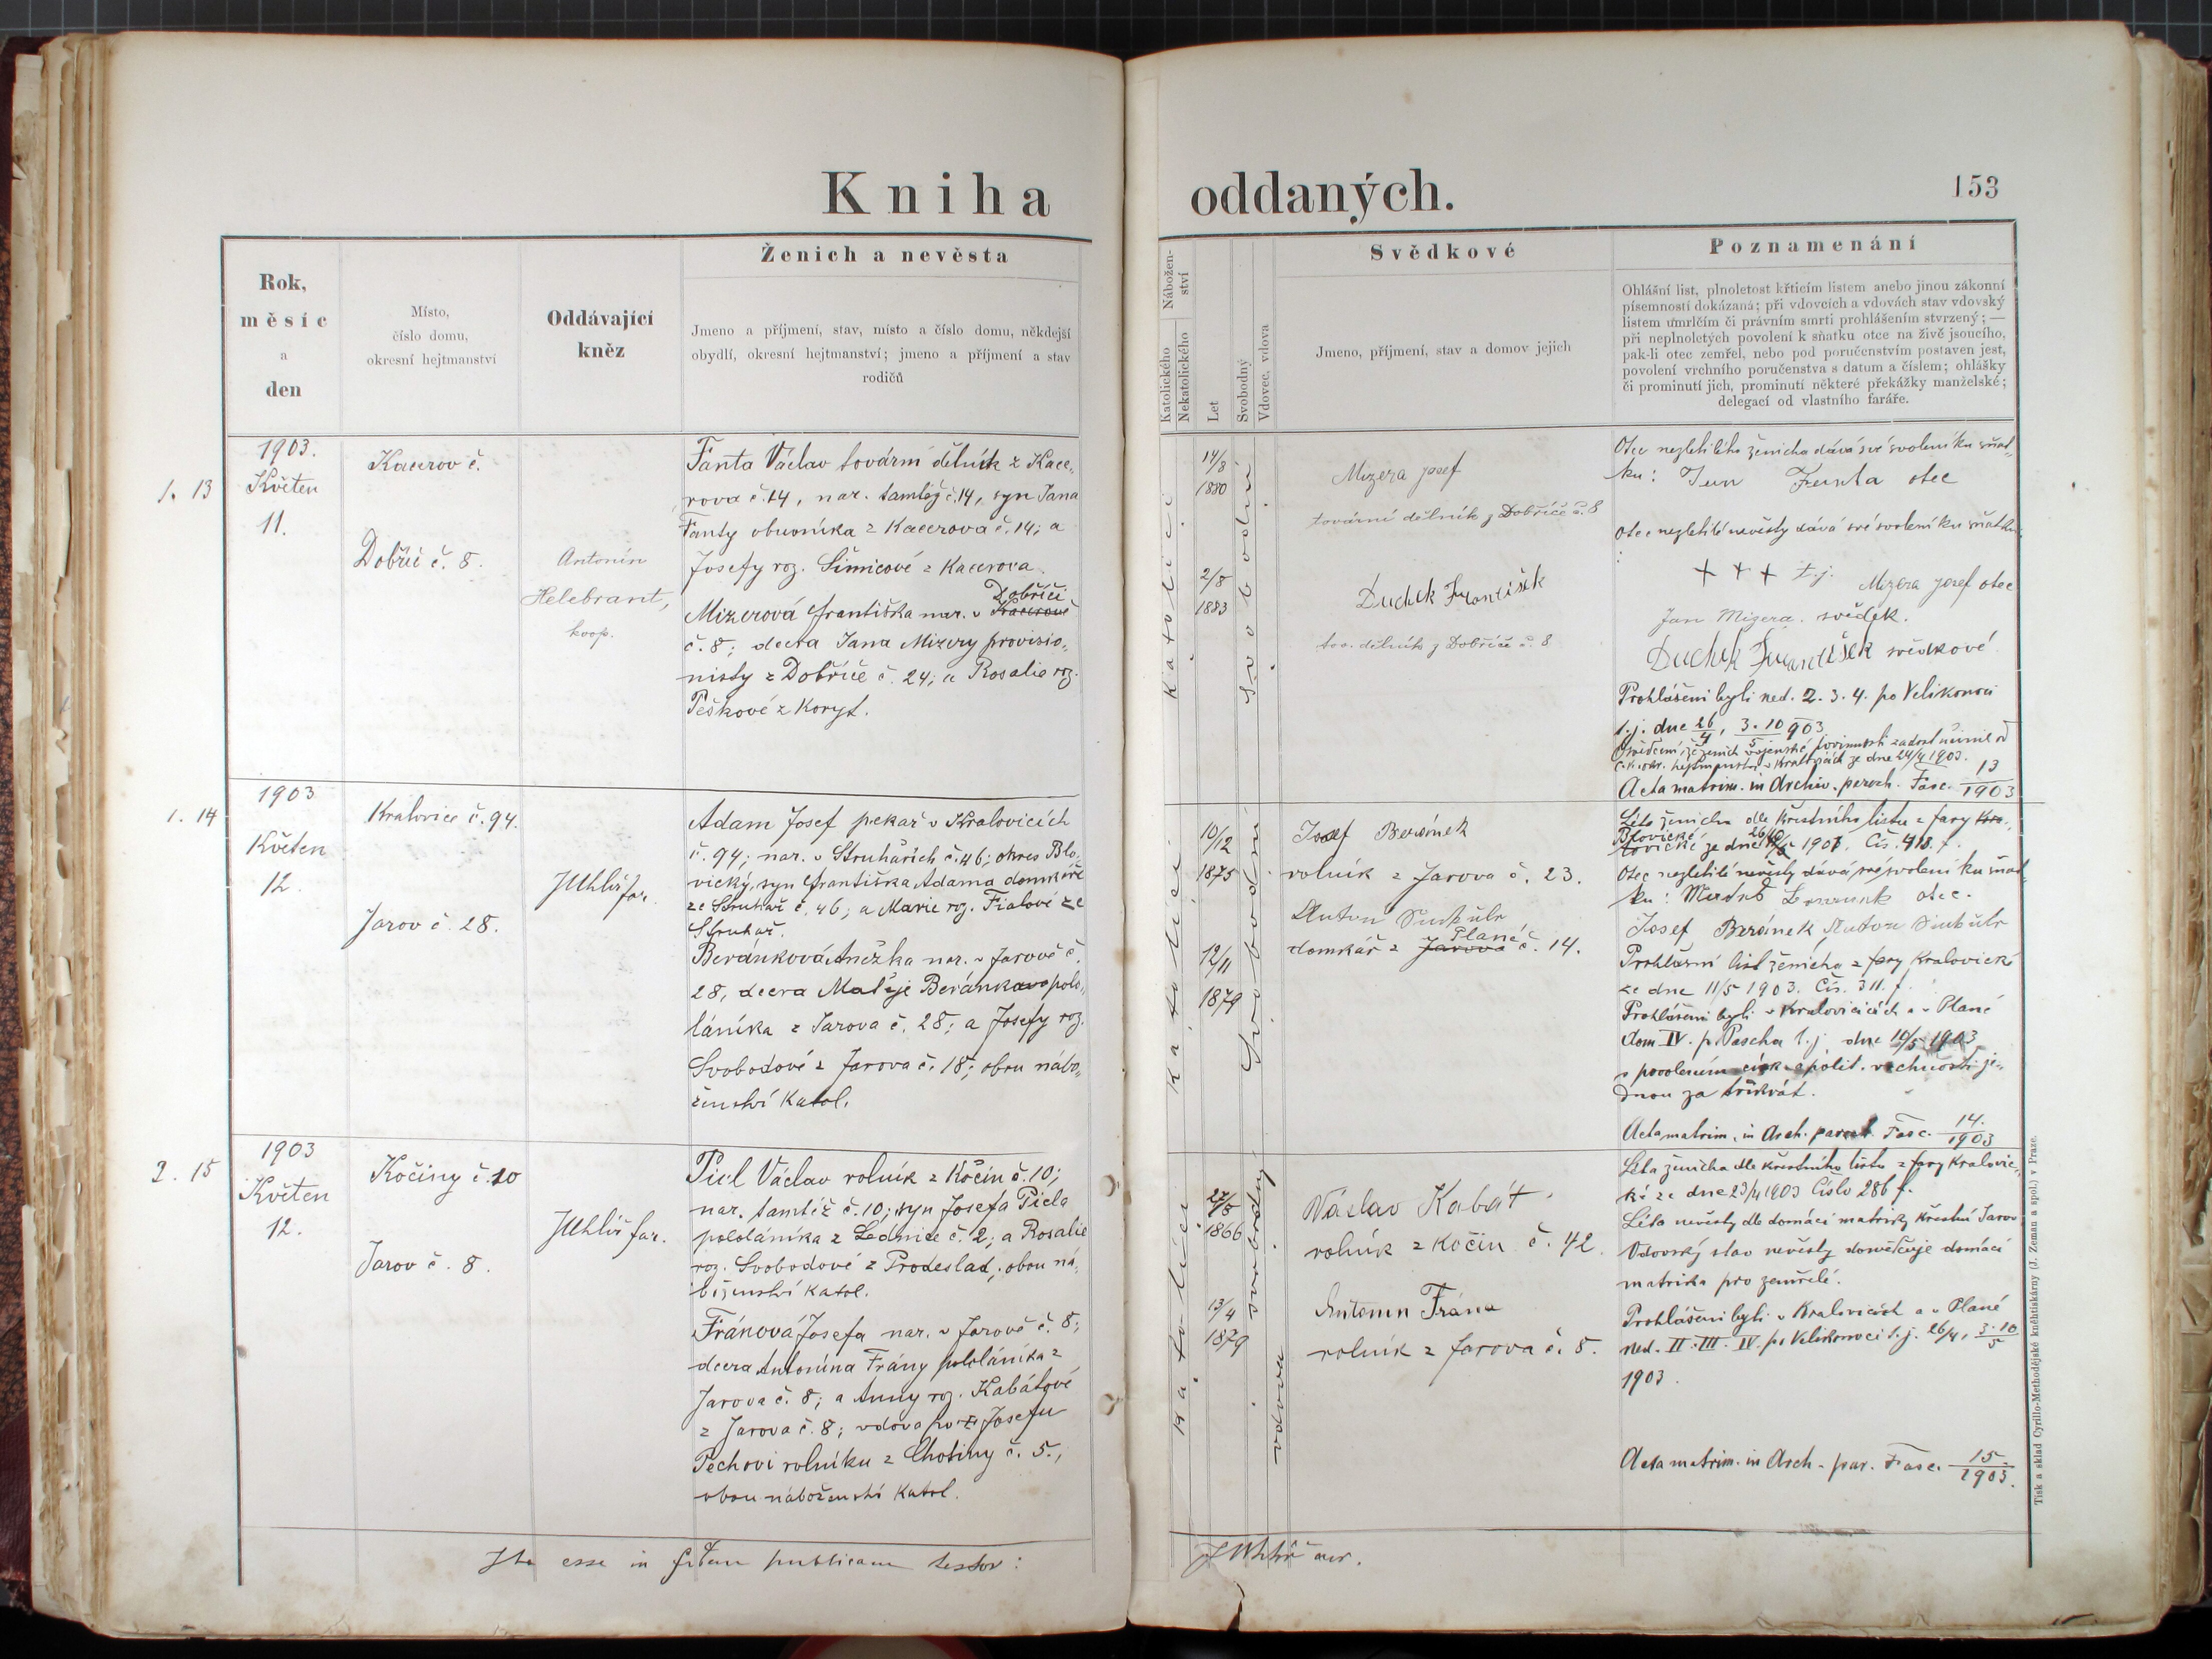 Kniha oddaných.
153
Rok,
měsíc
a
den
Místo,
číslo domu,
okresní hejtmanství
Oddávající
kněz
Ženich a nevěsta
Jmeno a příjmení, stav, místo a číslo domu, někdejší
obydlí, okresní hejtmanství; jmeno a příjmení a stav
rodičů
Nábožen-
ství
Katolického
Nekatolického
Let
Svobodný
Vdovec, vdova
Svědkové
Jmeno, příjmení, stav a domov jejich
Poznamenání
Ohlášní list, plnoletost křticím listem anebo jinou zákonní
písemností dokázaná; při vdovcích a vdovách stav vdovský
listem úmrlčím či právním smrti prohlášením stvrzený; —
při neplnoletých povolení k sňatku otce na živě jsoucího,
pak-li otec zemřel, nebo pod poručenstvím postaven jest,
povolení vrchního poručenstva s datum a číslem; ohlášky
či prominutí jich, prominutí některé překážky manželské;
delegací od vlastního faráře.
1. 13
1903.
Květen
11.
Kacerov č.
Dobříč č. 8.
Antonín
Helebrant,
koop.
Fanta Václav tovární dělník z Kace-
rova č. 14, nar. tamtéž č. 14, syn Jana
Fanty obuvníka z Kacerova č. 14; a
Josefy roz. Šimicové z Kacerova.
Dobříči
Mizerová Františka nar. v Kacerově
č. 8; dcera Jana Mizery provisio-
nisty z Dobříče č. 24; a Rosalie roz.
Peškové z Koryt.
Katolíci
14/8
1880
2/8
1883
Svobodní
Mizera josef
tovární dělník z Dobříče č. 8
Duchek František
tov. dělník z Dobříče č. 8
Otec nezletilého ženicha dává své svolení ku sňat-
ku: Jan Fanta otec
Otec nezletilé nevěsty dává své svolení ku sňatku:
+ + + t.j. Mizera josef otec
Jan Mizera. svědek.
Duchek František svědkové
Prohlášeni byli ned. 2. 3. 4. po Velikonoci
t.j. dne 26/4, 3. 10/5 903
Acta matrim. in Archiv. paroch. Fasc. 13/1903
1. 14
1903
Květen
12.
Kralovice č. 94.
Jarov č. 28.
JUhlíř far.
Adam Josef pekař v Kralovicích
č. 94; nar. v Struhařích č. 46; okres Blo-
vický, syn Františka Adama domkáře
ze Struhař č. 46; a Marie roz. Fialové ze
Struhař.
Beránková Anežka nar. v Jarově č.
28, dcera Matěje Beránka polo-
láníka z Jarova č. 28; a Josefy roz.
Svobodové z Jarova č. 18; obou nábo-
ženství katol.
Katolíci
10/12
1875
12/11
1879
Svobodní
Josef Beránek
rolník z Jarova č. 23.
Anton Sinkule
Plané
domkář z Jarova č. 14.
Léta ženicha dle křestního listu z fary Kra-
Blovické
Otec nezletilé nevěsty dává své svolení ku sňat-
ku: otec.
Josef Beránek Anton Sinkule
Prohlašní list ženicha z fary Kralovické
ze dne 11/5 1903. Čís. 311. f.
Prohlášeni byli v Kralovicích a v Plané
dom IV. p. Pascha t.j. dne 10/5 1903
s povolením círk. a polit. vrchnosti je-
dnou za třikrát.
Acta matrim. in Arch. paroch. Fasc. 14./1903
2. 15
1903
Květen
12.
Kočiny č. 10
Jarov č. 8.
JUhlíř far.
Picl Václav rolník z Kočin č. 10;
nar. tamtéž č. 10; syn Josefa Picla
pololáníka z Lednice č. 2; a Rosalie
roz. Svobodové z Prodeslad; obou ná-
boženství katol.
Fránová Josefa nar. v Jarově č. 8;
dcera Antonína Frány pololáníka z
Jarova č. 8; a Anny roz. Kabátové
z Jarova č. 8; vdova po Josefu
Pechovi rolníku z Chotiny č. 5.;
obou náboženství katol.
Katolíci
27/5
1866
13/4
1879
svobodný
vdova
Václav Kabát
rolník z Kočin č. 42.
Antonín Frána
rolník z Jarova č. 8.
Léta ženicha dle křestního listu z fary Kralovic-
ké ze dne 23/4 1903 Číslo 286 f.
Léta nevěsty dle domácí matriky křestní Jarov
Vdovský stav nevěsty dosvědčuje domácí
matrika pro zemřelé.
Prohlášeni byli v Kralovicích a v Plané
ned. II. III. IV. po Velikonoci t.j. 26/4, 3. 10/5
1903.
Acta matrim. in Arch. par. Fasc. 15./1903.
Ita esse in fidem publicam testor:
JUhlíř mp.
Tisk a sklad Cyrillo-Methodějské knihtiskárny (J. Zeman a spol.) v Praze.